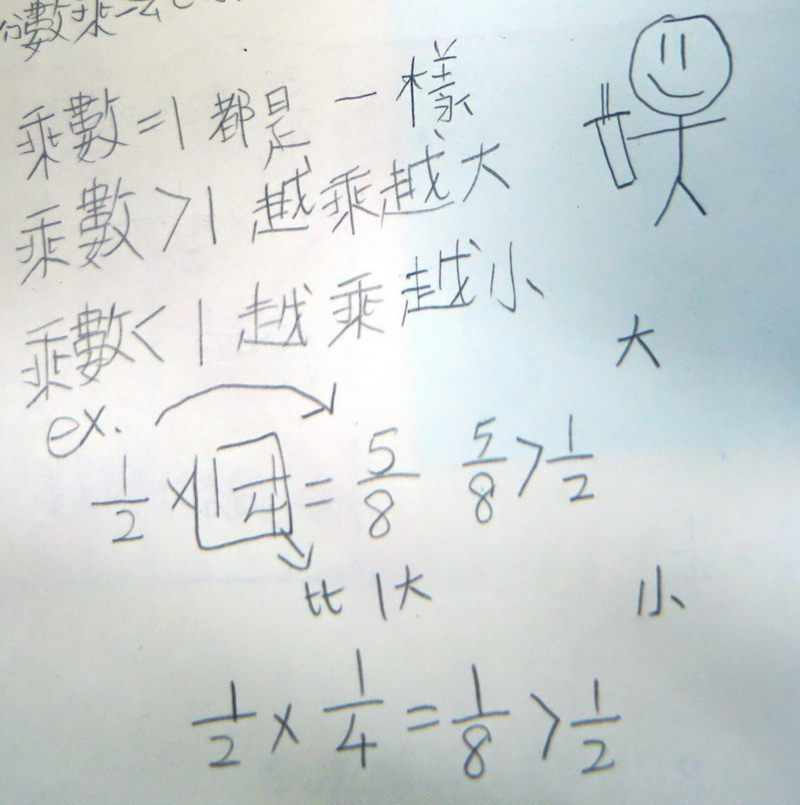 分數乘
乘數=1 都是一樣
乘數>1 越乘越大
乘數<1 越乘越小
大
ex.
1/2 × 1 1/4 = 5/8  5/8 > 1/2
比1大
小
1/2 × 1/4 = 1/8 > 1/2